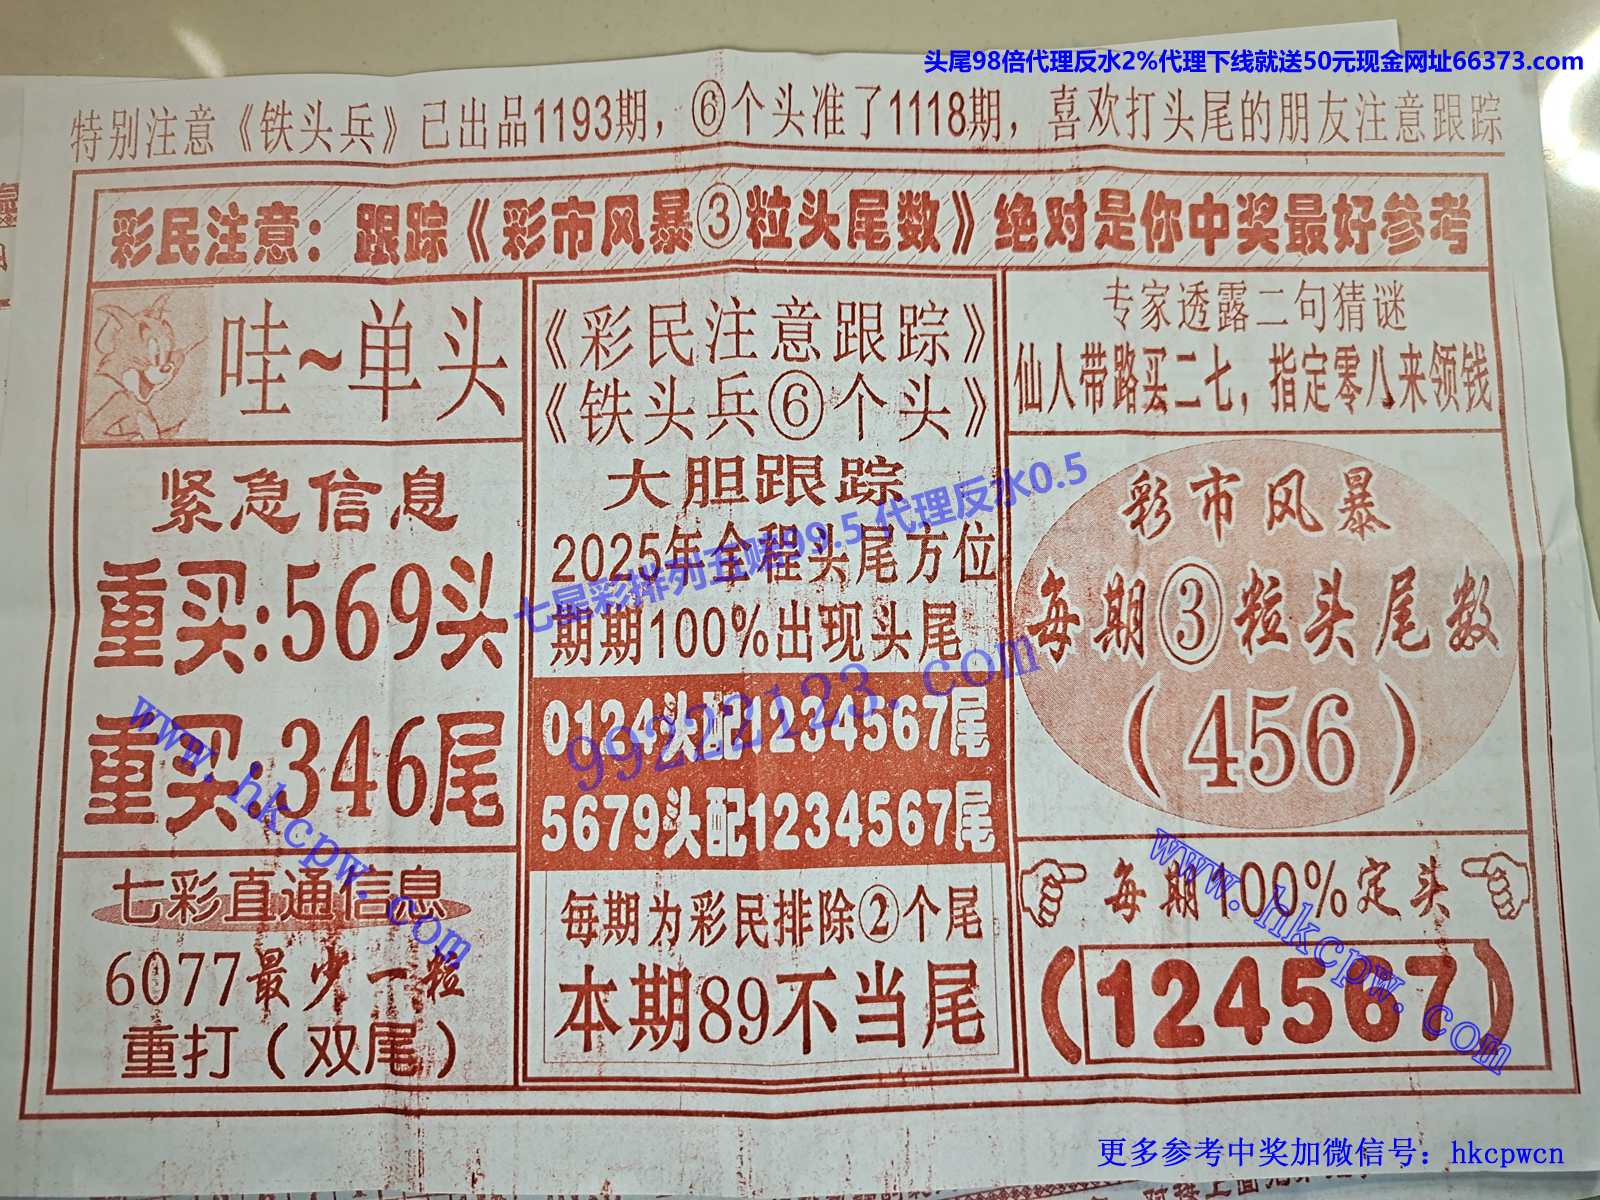 头尾98倍代理反水2%代理下线就送50元现金网址66373.com
特别注意《铁头兵》已出品1193期，⑥个头准了1118期，喜欢打头尾的朋友注意跟踪
彩民注意：跟踪《彩市风暴③粒头尾数》绝对是你中奖最好参考
哇~单头
紧急信息
重买:569头
重买:346尾
七彩直通信息
6077最少一粒
重打（双尾）
《彩民注意跟踪》
《铁头兵⑥个头》
大胆跟踪
2025年全程头尾方位
期期100%出现头尾
0124头配1234567尾
5679头配1234567尾
每期为彩民排除②个尾
本期89不当尾
专家透露二句猜谜
仙人带路买二七，指定零八来领钱
彩市风暴
每期③粒头尾数
（456）
每期100%定头
（124567）
七星彩排列五赔99.5 代理反水0.5
99222123.com
www.hkcpw.com
www.hkcpw.com
更多参考中奖加微信号：hkcpwcn